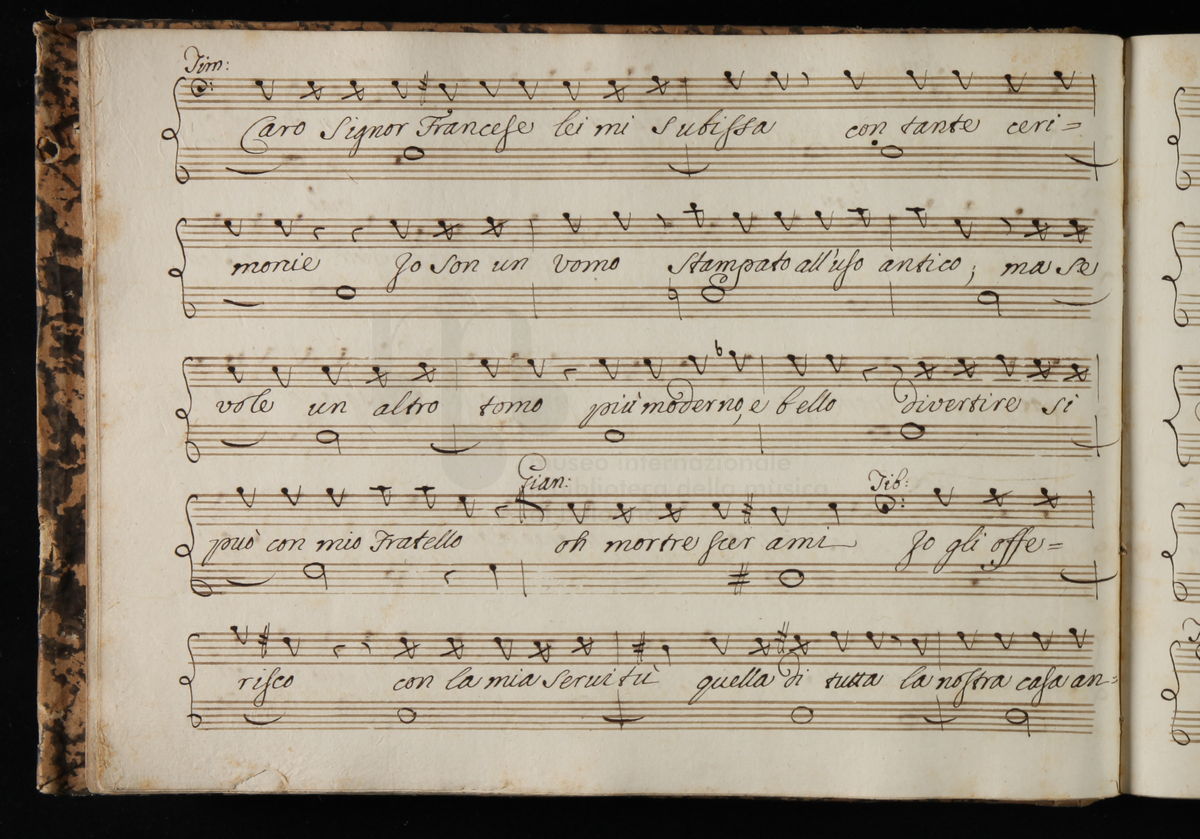 Tim:
Caro Signor Francese lei mi subissa con tante ceri=
monie Io son un Uomo stampato all'uso antico; ma se
vole un altro tomo più moderno, e bello divertire si
museo internazionale
biblioteca della musica
Gian: Tib:
può con mio Fratello oh mortre scer ami Io gli offe=
risco con la mia servitù quella di tutta la nostra casa an=